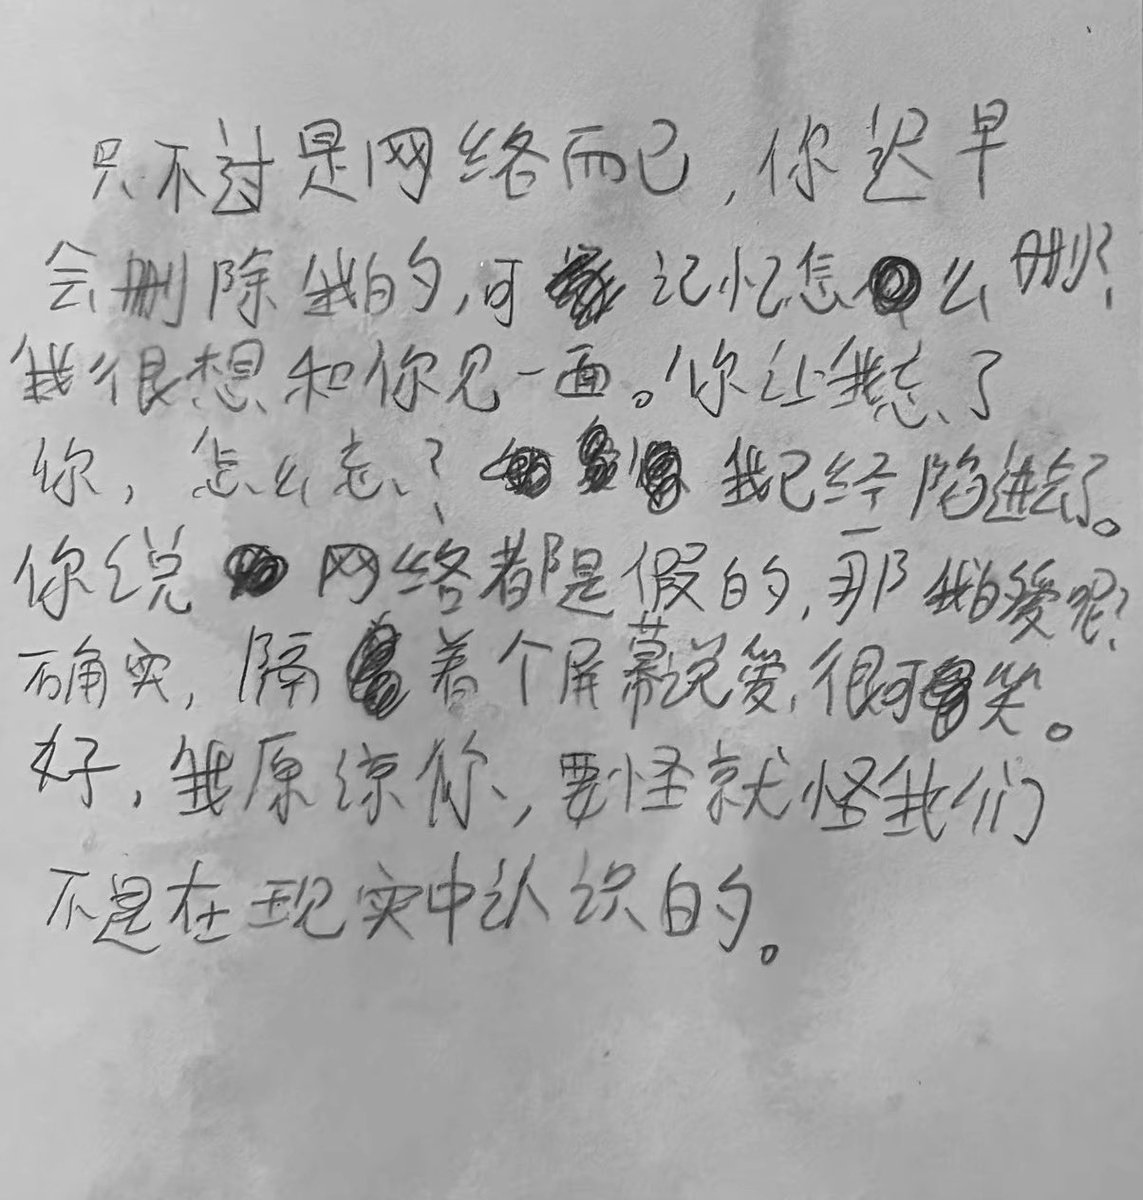 只不过是网络而已，你迟早
会删除我的，可记忆怎么删？
我很想和你见一面。你让我忘了
你，怎么忘？我已经陷进去了。
你说网络都是假的，那我的爱呢？
确实，隔着个屏幕说爱，很可笑。
好，我原谅你，要怪就怪我们
不是在现实中认识的。